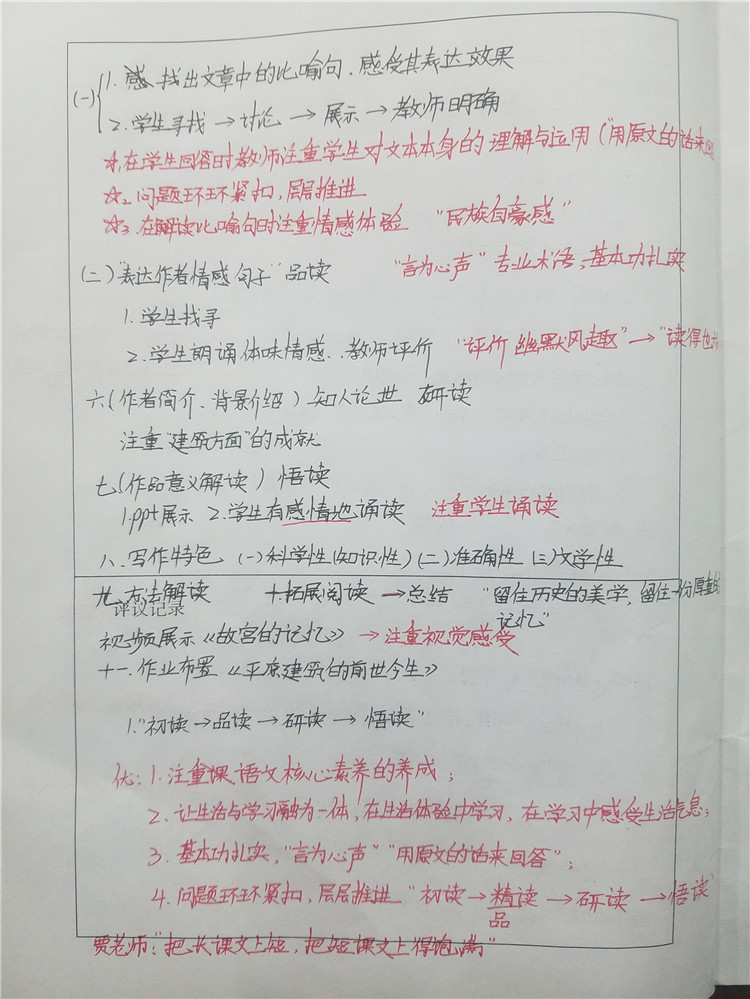 (一) 1. 找出文章中的比喻句,感受其表达效果
2. 学生寻找 → 讨论 → 展示 → 教师明确
☆1. 在学生回答时教师注重学生对文本本身的理解与运用("用原文的话来回
☆2. 问题环环紧扣,层层推进
☆3. 在解读比喻句时注重情感体验 "民族自豪感"
(二)"表达作者情感句子"品读 "言为心声"专业术语,基本功扎实
1. 学生找寻
2. 学生朗诵体味情感..教师评价 "评价幽默风趣"→"读得也
六(作者简介、背景介绍)知人论世 研读
注重"建筑方面"的成就
七(作品意义解读)悟读
1.ppt展示 2.学生有感情地诵读 注重学生诵读
八、写作特色 (一)科学性(知识性)(二)准确性 (三)文学性
九、方法解读 十拓展阅读 → 总结 "留住历史的美学,留住一份厚重的
评议记录
记忆"
视频展示《故宫的记忆》 → 注重视觉感受
十一、作业布置《平原建筑的前世今生》
1."初读→品读→研读→悟读"
优: 1. 注重课语文核心素养的养成;
2. 让生活与学习融为一体,在生活体验中学习,在学习中感受生活气息;
3. 基本功扎实,"言为心声""用原文的话来回答";
4. 问题环环紧扣,层层推进"初读→精读→研读→悟读"
品
贾老师:"把长课文上短,把短课文上得饱满"